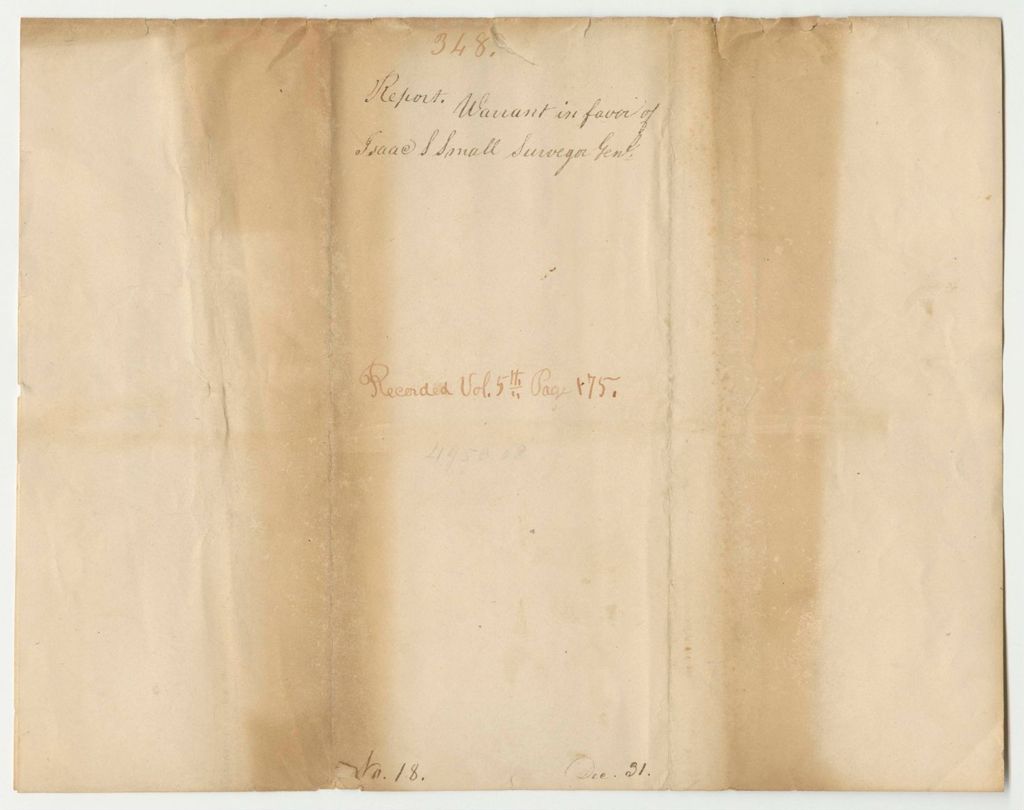 348.
Report. Warrant in favor of
Isaac S Small Surveyor Genl.
Recorded Vol. 5th Page 175.
No. 18. Dec. 31.